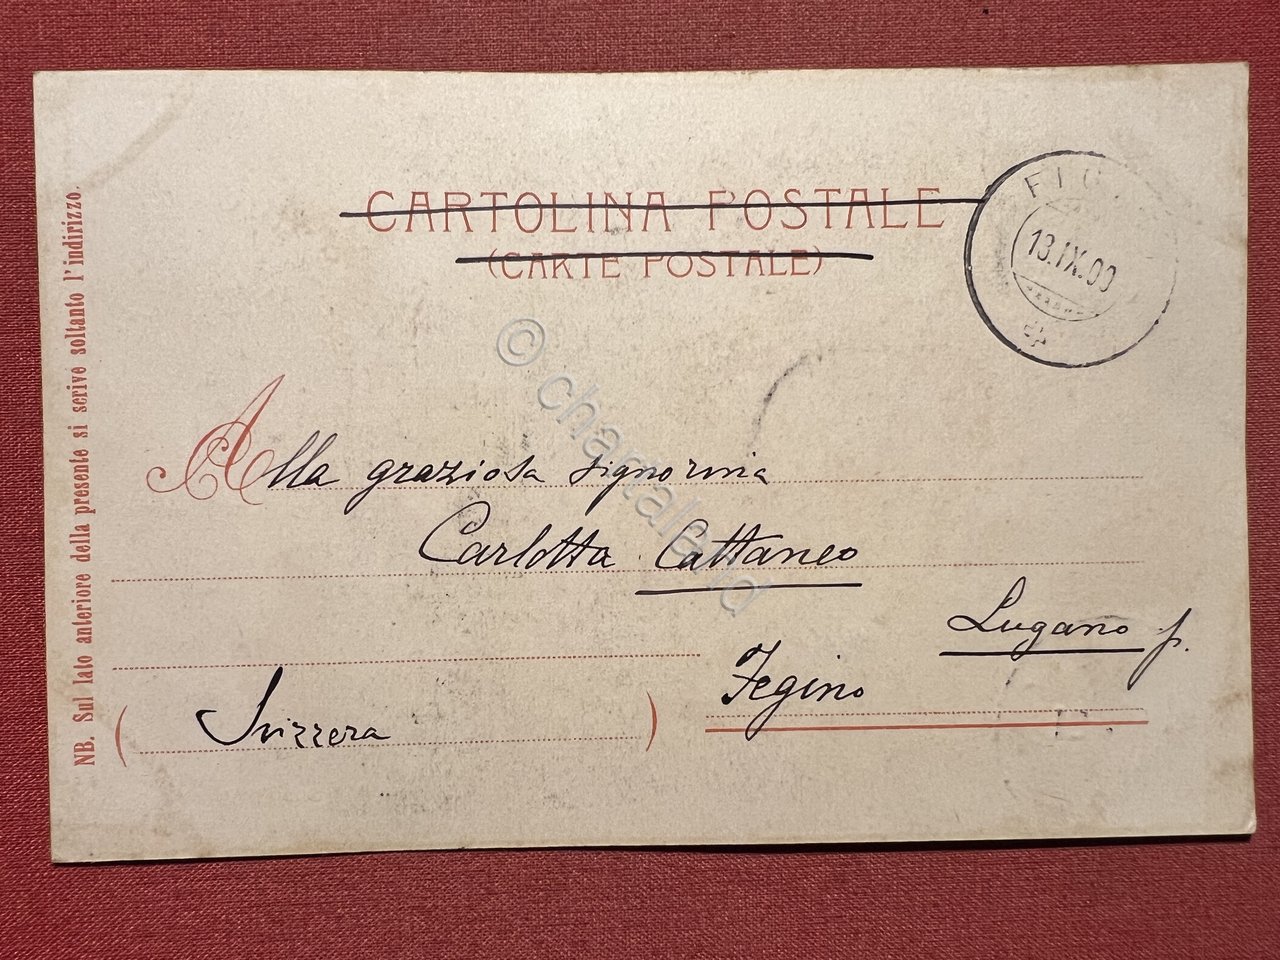 CARTOLINA POSTALE
(CARTE POSTALE)
13.IX.00
Alla graziosa signorina
Carlotta Cattaneo
Lugano p.
Fegino
(Svizzera)
NB. Sul lato anteriore della presente si scrive soltanto l'indirizzo.
© chartaland